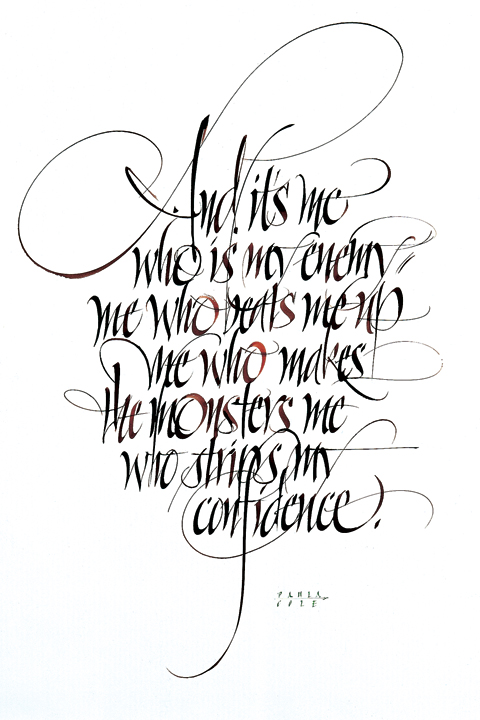 And it's me
who is my enemy
me who beats me up
me who makes
the monsters me
who strips my
confidence.
PAULA
COLE